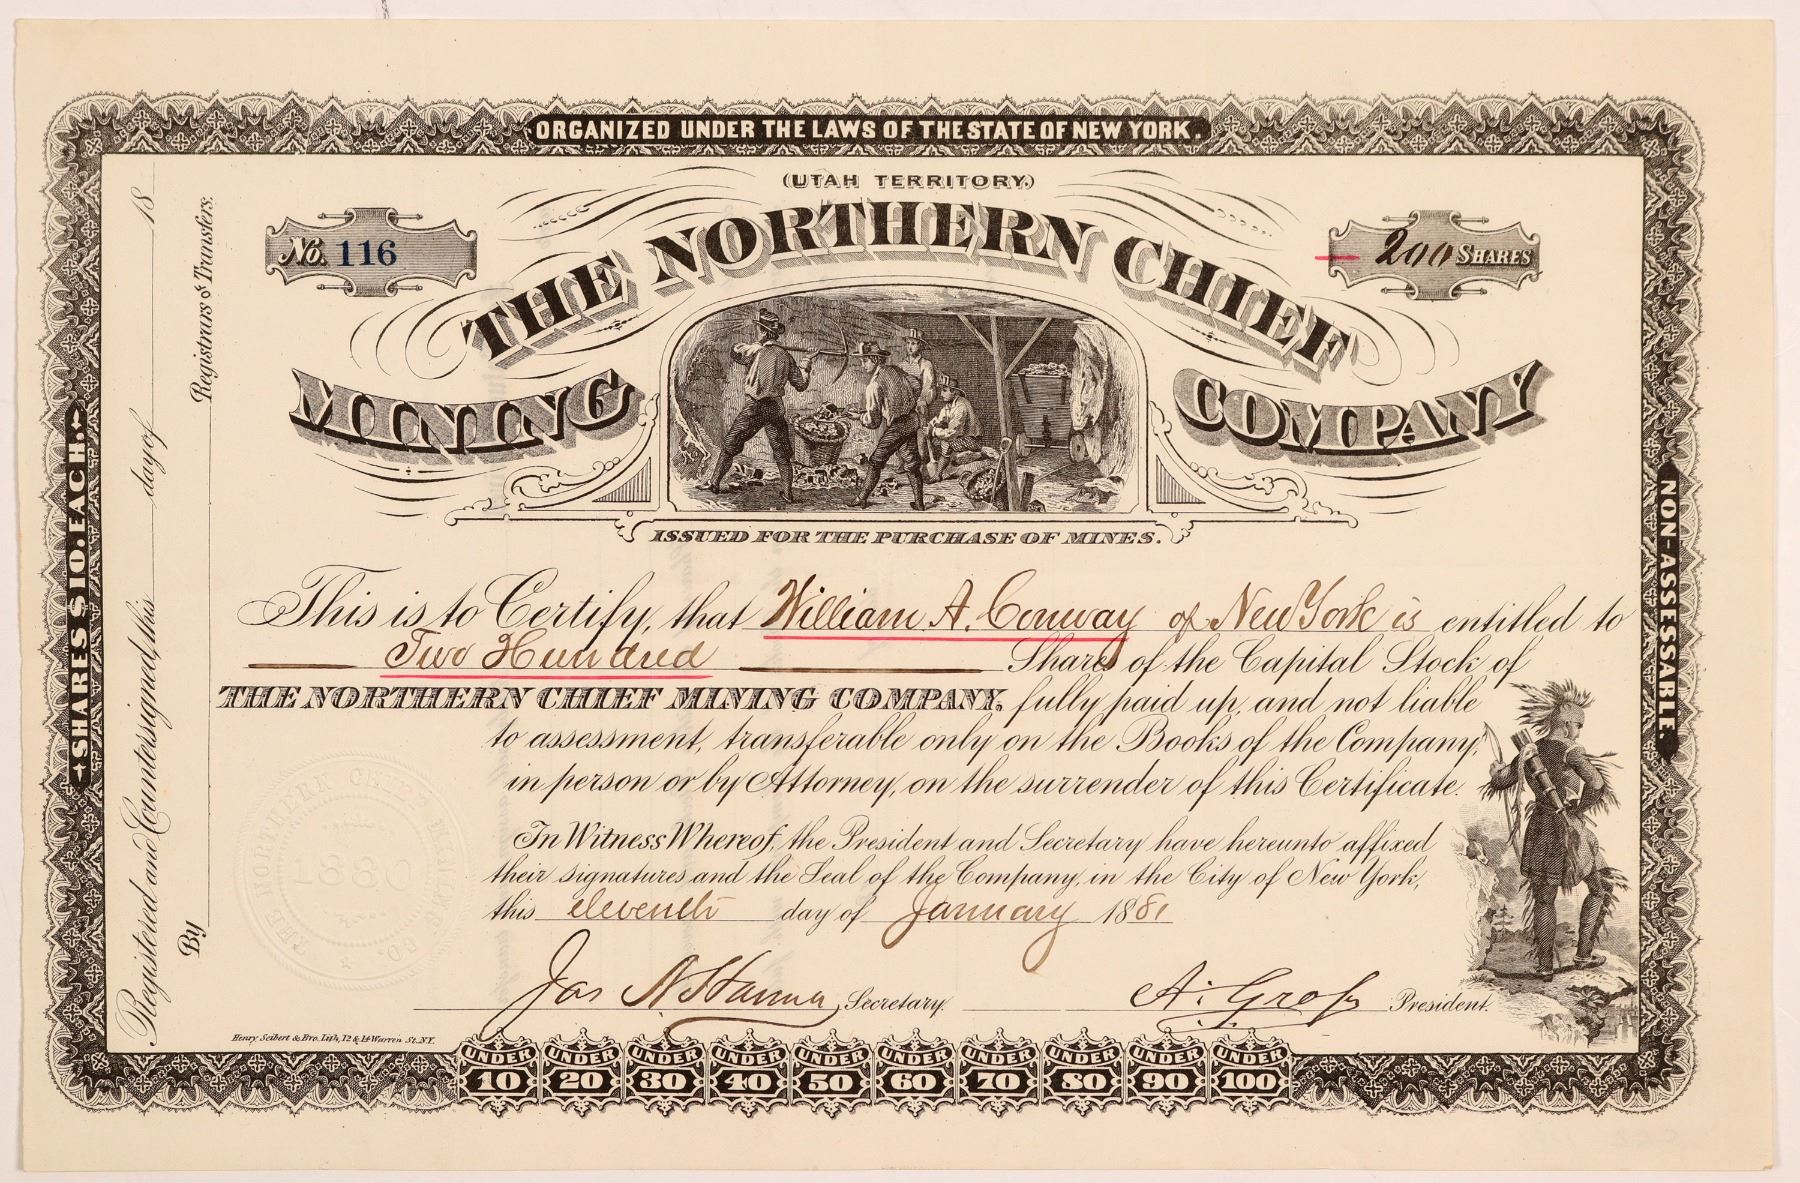 ORGANIZED UNDER THE LAWS OF THE STATE OF NEW YORK.
(UTAH TERRITORY.)
No. 116
200 SHARES
THE NORTHERN CHIEF
MINING COMPANY
ISSUED FOR THE PURCHASE OF MINES.
This is to Certify, that William A. Conway of New York is entitled to
Two Hundred Shares of the Capital Stock of
THE NORTHERN CHIEF MINING COMPANY, fully paid up, and not liable
to assessment, transferable only on the Books of the Company,
in person or by Attorney, on the surrender of this Certificate.
In Witness Whereof, the President and Secretary have hereunto affixed
their signatures and the Seal of the Company, in the City of New York,
this eleventh day of January 1881
Jas N. Hanna Secretary. A. Gross President.
Henry Seibert & Bro. Lith, 12 & 14 Warren St. N.Y.
UNDER 10 UNDER 20 UNDER 30 UNDER 40 UNDER 50 UNDER 60 UNDER 70 UNDER 80 UNDER 90 UNDER 100
SHARES $10. EACH.
NON-ASSESSABLE.
Registered and Countersigned, this day of 18
By Registrars of Transfers.
THE NORTHERN CHIEF MINING CO.
1880